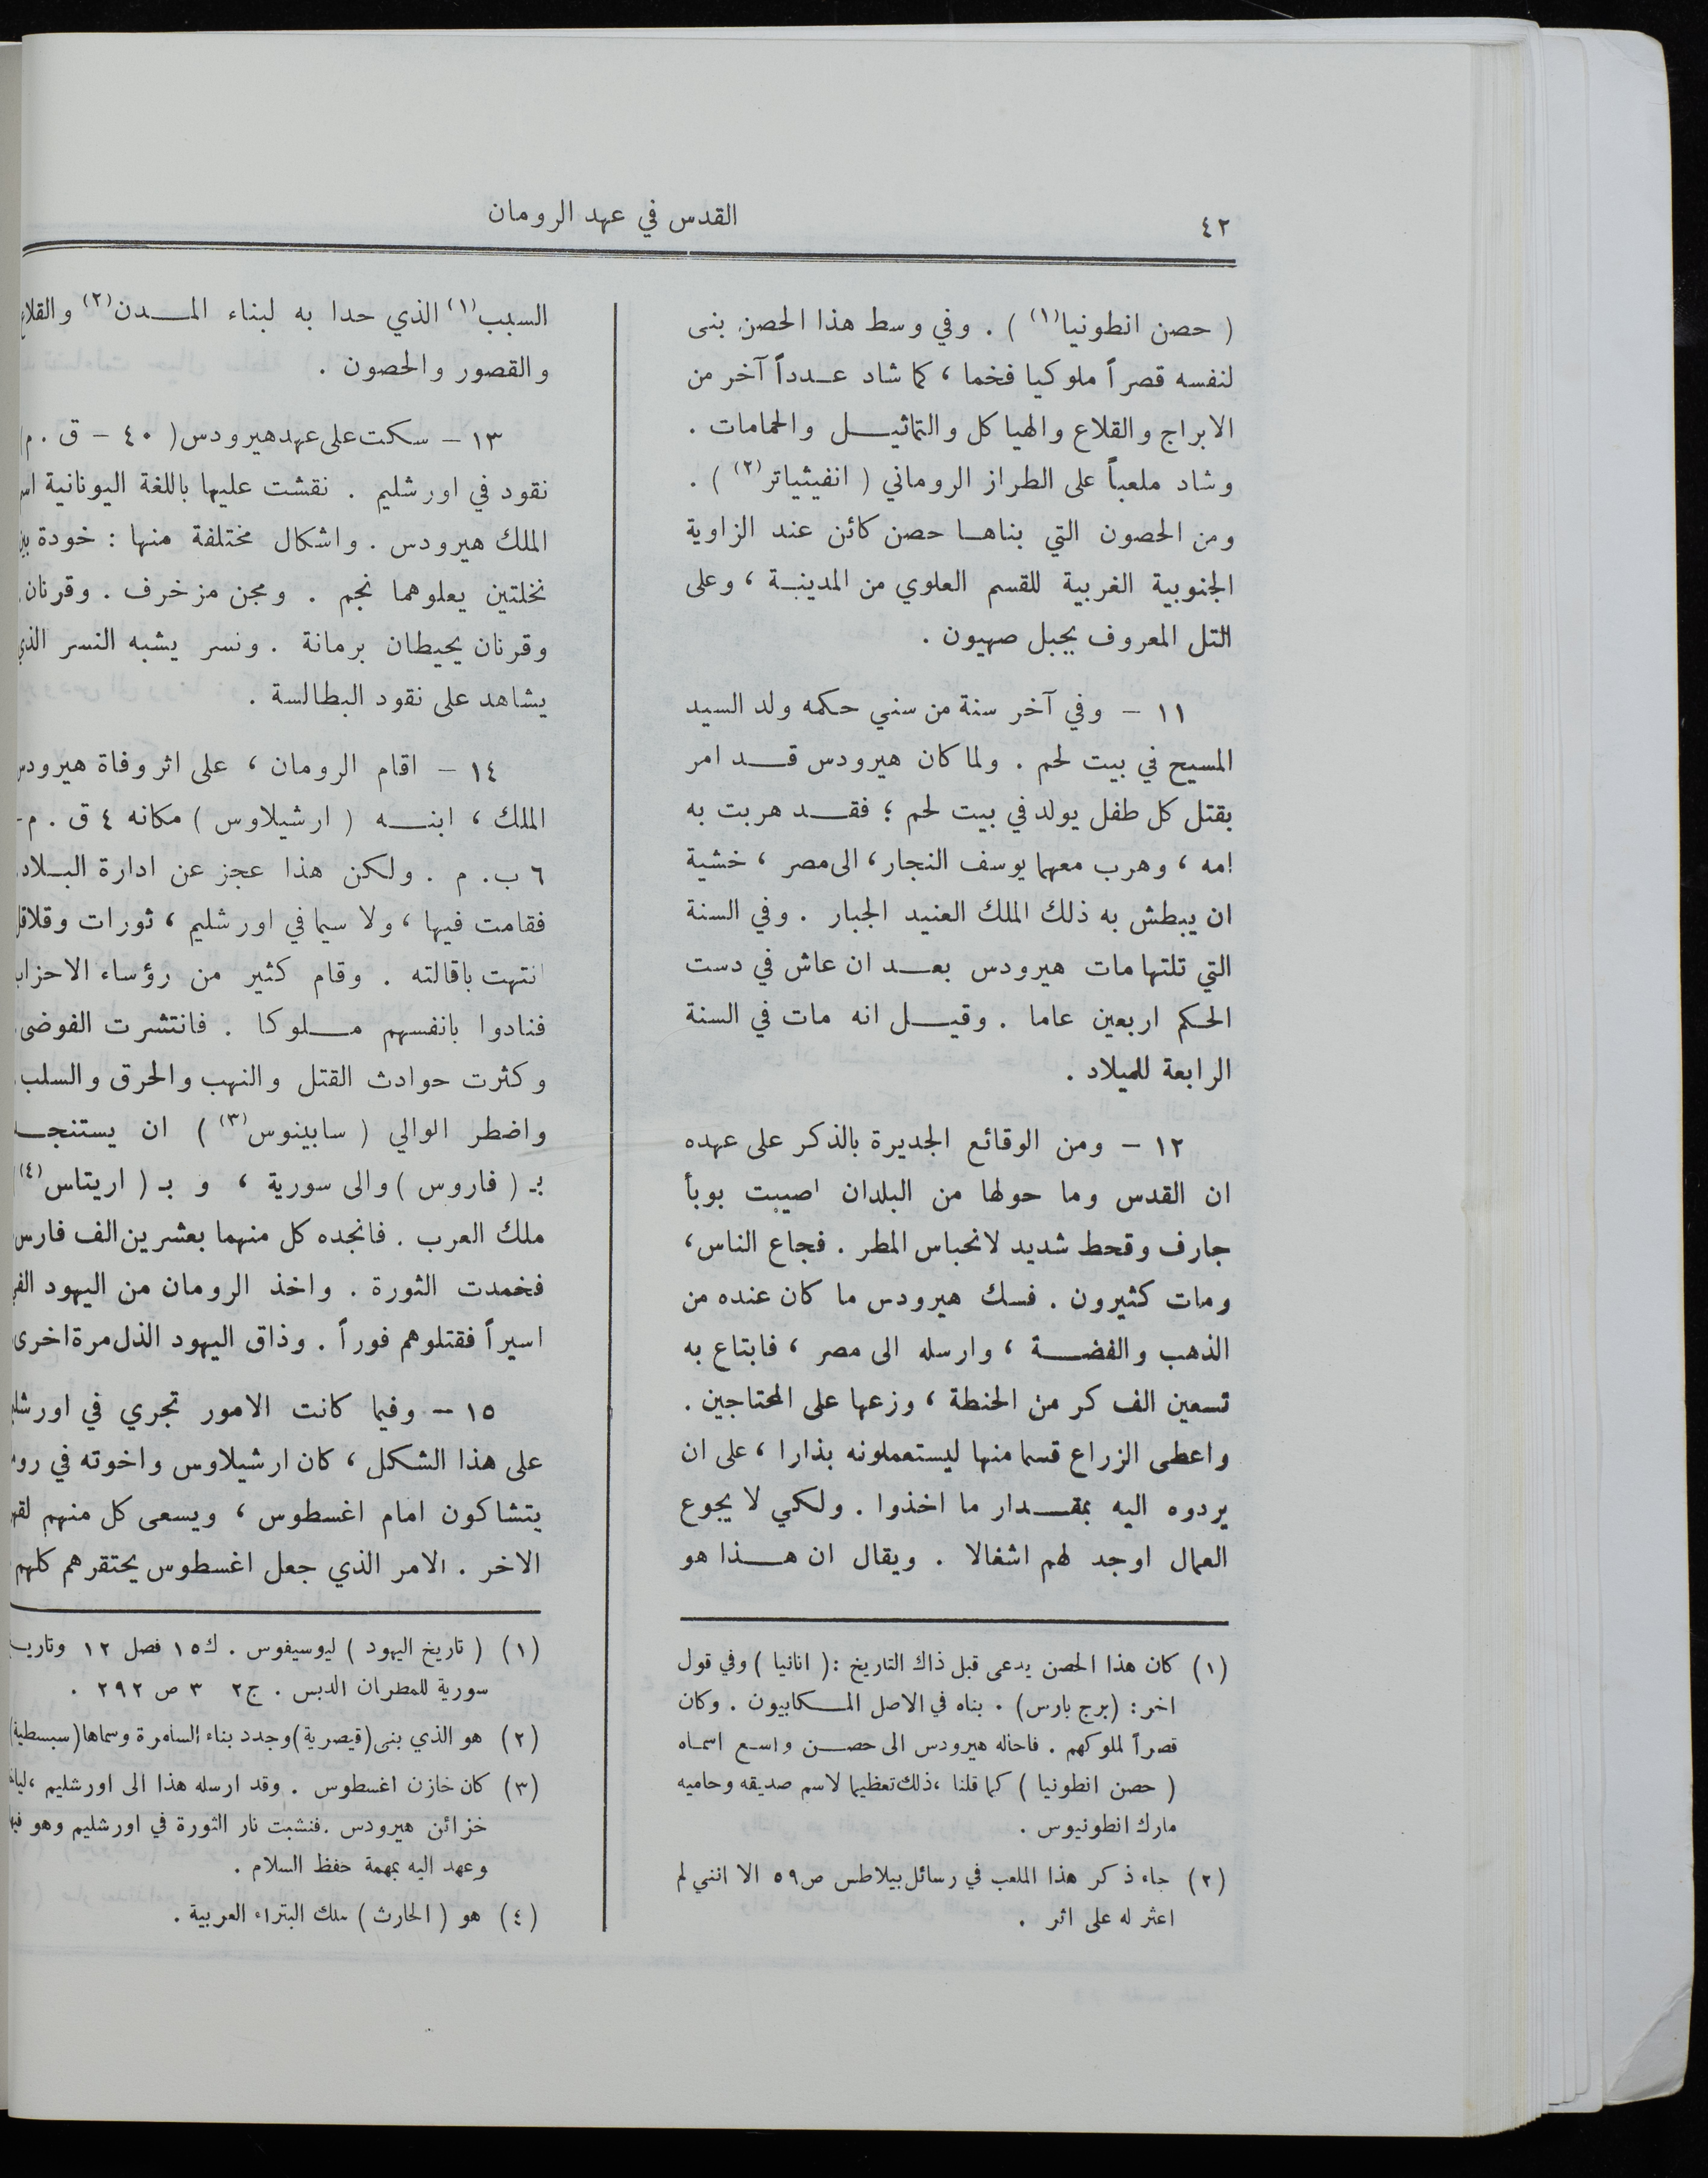 ٤٢
القدس في عهد الرومان
( حصن انطونيا(١) ) . وفي وسط هذا الحصن بنى
لنفسه قصراً ملوكيا فخما ، كما شاد عدداً آخر من
الابراج والقلاع والهياكل والتماثيل والحمامات .
وشاد ملعباً على الطراز الروماني ( انفيثياتر(٢) ) .
ومن الحصون التي بناها حصن كائن عند الزاوية
الجنوبية الغربية للقسم العلوي من المدينة ، وعلى
التل المعروف بجبل صهيون .
١١ – وفي آخر سنة من سني حكمه ولد السيد
المسيح في بيت لحم . ولما كان هيرودس قد امر
بقتل كل طفل يولد في بيت لحم ؛ فقد هربت به
امه ، وهرب معهما يوسف النجار ، الى مصر ، خشية
ان يبطش به ذلك الملك العنيد الجبار . وفي السنة
التي تلتها مات هيرودس بعد ان عاش في دست
الحكم اربعين عاما . وقيل انه مات في السنة
الرابعة للميلاد .
١٢ – ومن الوقائع الجديرة بالذكر على عهده
ان القدس وما حولها من البلدان اصيبت بوبأ
جارف وقحط شديد لانحباس المطر . فجاع الناس ،
ومات كثيرون . فسك هيرودس ما كان عنده من
الذهب والفضة ، وارسله الى مصر ، فابتاع به
تسعين الف كر من الحنطة ، وزعها على المحتاجين .
واعطى الزراع قسما منها ليستعملونه بذارا ، على ان
يردوه اليه بمقدار ما اخذوا . ولكي لا يجوع
العمال اوجد لهم اشغالا . ويقال ان هذا هو
(١) كان هذا الحصن يدعى قبل ذاك التاريخ : ( انانيا ) وفي قول
اخر : (برج بارس) . بناه في الاصل المكابيون . وكان
قصراً لملوكهم . فاحاله هيرودس الى حصن واسع اسماه
( حصن انطونيا ) كما قلنا ، ذلك تعظيما لاسم صديقه وحاميه
مارك انطونيوس .
(٢) جاء ذكر هذا الملعب في رسائل بيلاطس ص ٥٩ الا انني لم
اعثر له على اثر .
السبب(١) الذي حدا به لبناء المدن(٢) والقلاع
والقصور والحصون .
١٣ – سكت على عهد هيرودس ( ٤٠ – ق . م )
نقود في اورشليم . نقشت عليها باللغة اليونانية
الملك هيرودس . واشكال مختلفة منها : خودة
نخلتين يعلوهما نجم . ومجن مزخرف . وقرنان
وقرنان يحيطان برمانة . ونسر يشبه النسر الذي
يشاهد على نقود البطالسة .
١٤ – اقام الرومان ، على اثر وفاة هيرودس
الملك ، ابنه ( ارشيلاوس ) مكانه ٤ ق . م -
٦ ب . م . ولكن هذا عجز عن ادارة البلاد
فقامت فيها ، ولا سيما في اورشليم ، ثورات وقلاقل
انتهت باقالته . وقام كثير من رؤساء الاحزاب
فنادوا بانفسهم ملوكا . فانتشرت الفوضى
وكثرت حوادث القتل والنهب والحرق والسلب
واضطر الوالي ( سابينوس(٣) ) ان يستنجد
بـ ( فاروس ) والى سورية ، و بـ ( اريتاس(٤)
ملك العرب . فانجده كل منهما بعشرين الف فارس
فخمدت الثورة . واخذ الرومان من اليهود
اسيراً فقتلوهم فوراً . وذاق اليهود الذل مرة اخرى
١٥ – وفيما كانت الامور تجري في
على هذا الشكل ، كان ارشيلاوس واخوته في
يتشاكون امام اغسطوس ، ويسعى كل منهم
الاخر . الامر الذي جعل اغسطوس يحتقرهم كلهم
(١) ( تاريخ اليهود ) ليوسيفوس . ك ١٥ فصل ١٢ وتاريخ
سورية للمطران الدبس . ج٢ ٣ ص ٢٩٢ .
(٢) هو الذي بنى (قيصرية) وجدد بناء السامرة وسماها (سبسطية)
(٣) كان خازن اغسطوس . وقد ارسله هذا الى اورشليم ،
خزائن هيرودس . فنشبت نار الثورة في اورشليم وهو فيها
وعهد اليه بمهمة حفظ السلام .
(٤) هو ( الحارث ) ملك البتراء العربية .